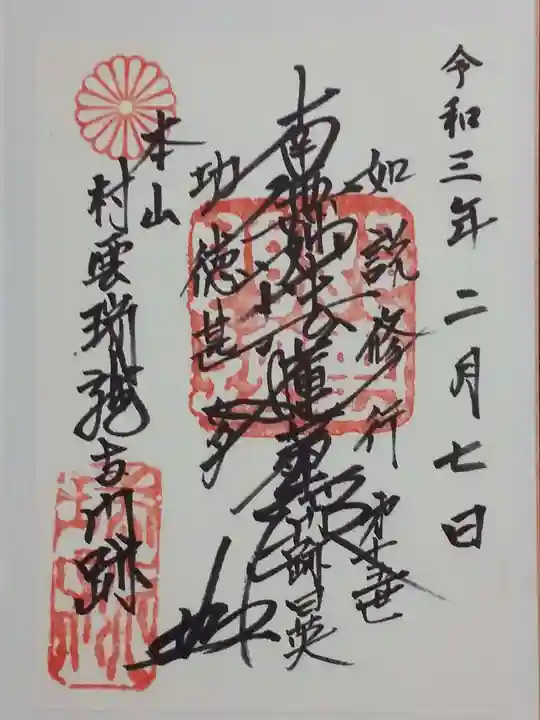 令和三年二月七日
如説修行
南無妙法蓮華経
功徳甚多
門跡日英
本山
村雲瑞龍寺門跡